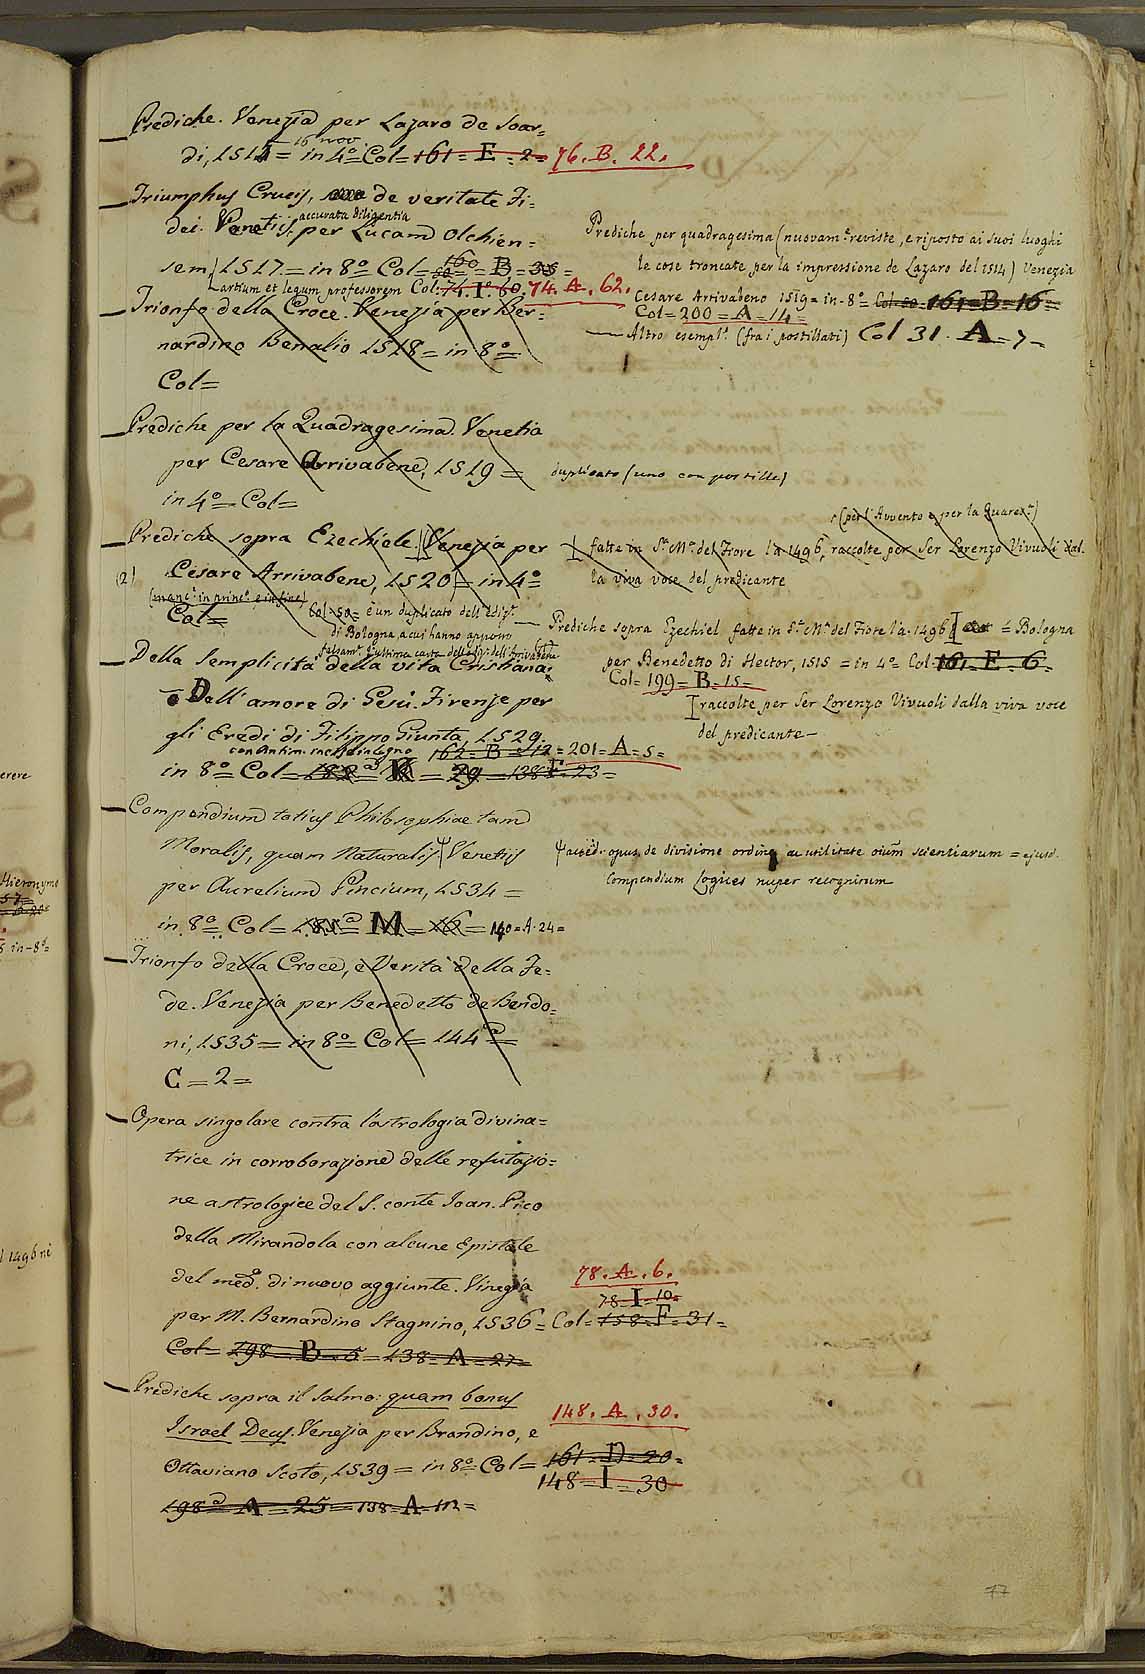 Prediche. Venezia per Lazaro de Soar=
di, 1514 = 16 nov in 4º Col= 161= E = 2= 76. B. 22.
Triumphus Crucis, de veritate Fi=
dei. Venetiis, accurata diligentia per Lucam Olchien=
sem, 1517 = in 8º Col= 160 = B = 35 =
artium et legum professorem Col: 74. I. 60. 74. A. 62.
Trionfo della Croce. Venezia per Ber=
nardino Benalio 1518 = in 8º =
Col=
Prediche per quadragesima (nuovam.e reviste, e riposto ai suoi luoghi
le cose troncate per la impressione de Lazaro del 1514) Venezia
Cesare Arrivabeno 1519 = in-8º = Col 161=B=16=
Col= 200 = A = 14=
— Altro esempl.e (fra i postillati) Col 31. A = 7 =
Prediche per la Quadragesima. Venetia
per Cesare Arrivabene, 1519 = duplicato (uno con postille)
in 4º = Col=
Prediche sopra Ezechiele. Venezia per
(2) Cesare Arrivabene, 1520 = in 4º
(manc.e in princ.o e in fine)
Col= Col 50= è un duplicato dell'ediz.e
di Bologna, a cui hanno apposto
falsam.e l'ultima carta dell'ediz. dell'Arrivabene
(per l'Avvento e per la Quares.a)
fatte in S.ta M.a del Fiore l'a 1496, raccolte per Ser Lorenzo Vivuoli dal.
la viva voce del predicante
— Prediche sopra Ezechiel fatte in S.ta M.a del Fiore l'a. 1496 = Bologna
per Benedetto di Hector, 1515 = in 4º Col 161= E = 6=
Col= 199= B= 15=
raccolte per Ser Lorenzo Vivuoli dalla viva voce
del predicante —
Della semplicità della vita Cristiana.
— Dell'amore di Gesù. Firenze per
gli Eredi di Filippo Giunta, 1529.
con Antim. in legno 162= B = 12 = 201= A = 5=
in 8º Col= 182 = K = 29 = 138 F = 23 =
Compendium totius Philosophiae tam
Moralis, quam Naturalis. Venetiis
per Aurelium Pincium, 1534 =
in 8º Col= 185ª M = 16 = 140 = A. 24 =
acced. opus de divisione ordine ac utilitate oium scientiarum = ejusd.
Compendium Logices nuper recognitum
Trionfo della Croce, e Verità della Fe=
de. Venezia per Benedetto de Bendo=
ni, 1535 = in 8º Col= 144ª =
C = 2 =
Opera singolare contra l'astrologia divina=
trice in corroborazione delle refutazio=
ne astrologice del S. conte Joan. Pico
della Mirandola con alcune Epistole
del medº. di nuovo aggiunte. Vinegia
78. A. 6.
78 I 10=
per M. Bernardino Stagnino, 1536 = Col= 158= F= 31=
Col= 198= B= 5 = 138 = A = 27 =
Prediche sopra il Salmo: quam bonus
Israel Deus. Venezia per Brandino, e
148. A. 30.
Ottaviano Scoto, 1539 = in 8º Col= 161= D= 20=
148=I=30
198ª A = 25 = 138 = A = 112 =
77
erere
Hieronymo
57=
8 in-8º=
1496 ni